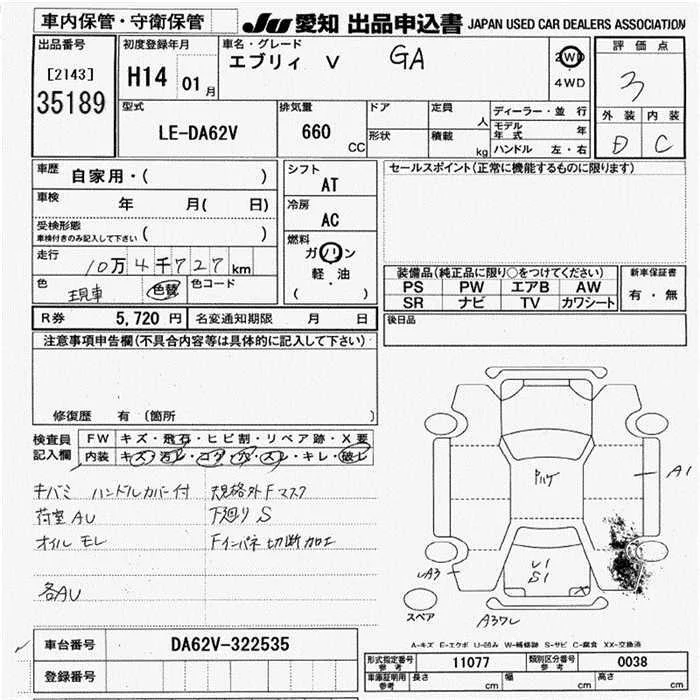 車内保管・守衛保管
JU 愛知 出品申込書 JAPAN USED CAR DEALERS ASSOCIATION
出品番号
[2143]
35189
初度登録年月
H14 01 月
車名・グレード
エブリィ V GA
2WD
4WD
評価点
3
外装 内装
D C
型式
LE-DA62V
排気量
660 CC
ドア
形状
定員 人
積載 kg
ディーラー・並 行
モデル年式 年
ハンドル 左・右
車歴
自家用・( )
車検
年 月( 日)
受検形態
車検付きのみ記入して下さい ( )
走行
10万4千727km
色
現車 色替
色コード
シフト
AT
冷房
AC
燃料
ガソリン
軽・油
( )
セールスポイント(正常に機能するものに限ります)
装備品(純正品に限り○をつけてください)
PS PW エアB AW
SR ナビ TV カワシート
新車保証書
有・無
R券 5,720 円 名変通知期限 月 日
後日品
注意事項申告欄(不具合内容等は具体的に記入して下さい)
修復歴 有 〔箇所 〕
検査員記入欄
FW キズ・飛石・ヒビ割・リペア跡・X要
内装 キズ・汚レ・コゲ・穴・スレ・キレ・破レ
キバミ ハンドルカバー付 規格外Fマスク
荷室AU 下廻りS
オイルモレ Fインパネ切断加工
各AU
A1
U1
S1
X
A3
スペア
A-キズ E-エクボ U-凹み W-補修跡 S-サビ C-腐食 XX-交換済
車台番号 DA62V-322535
登録番号
形式指定番号 参考 11077 類別区分番号 参考 0038
車庫証明用 参考 長さ cm 幅 cm 高さ cm